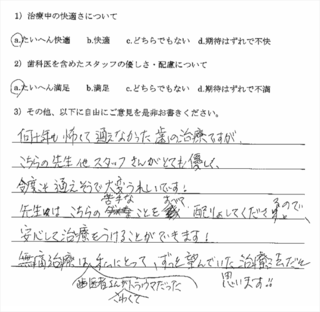 1）治療中の快適さについて
a.たいへん快適 b.快適 c.どちらでもない d.期待はずれで不快
2）歯科医を含めたスタッフの優しさ・配慮について
a.たいへん満足 b.満足 c.どちらでもない d.期待はずれで不満
3）その他、以下に自由にご意見を是非お書きください。
何十年も怖くて通えなかった歯の治療ですが、
こちらの先生他スタッフさんがとても優しく、
今度こそ通えそうで大変うれしいです！
先生は こちらの苦手な ことを すべて 配りょしてくださるので、
安心して治療をうけることができます！
無痛治療は、私にとって、ずっと望んでいた治療だと
思います!!
歯医者さんがトラウマだった